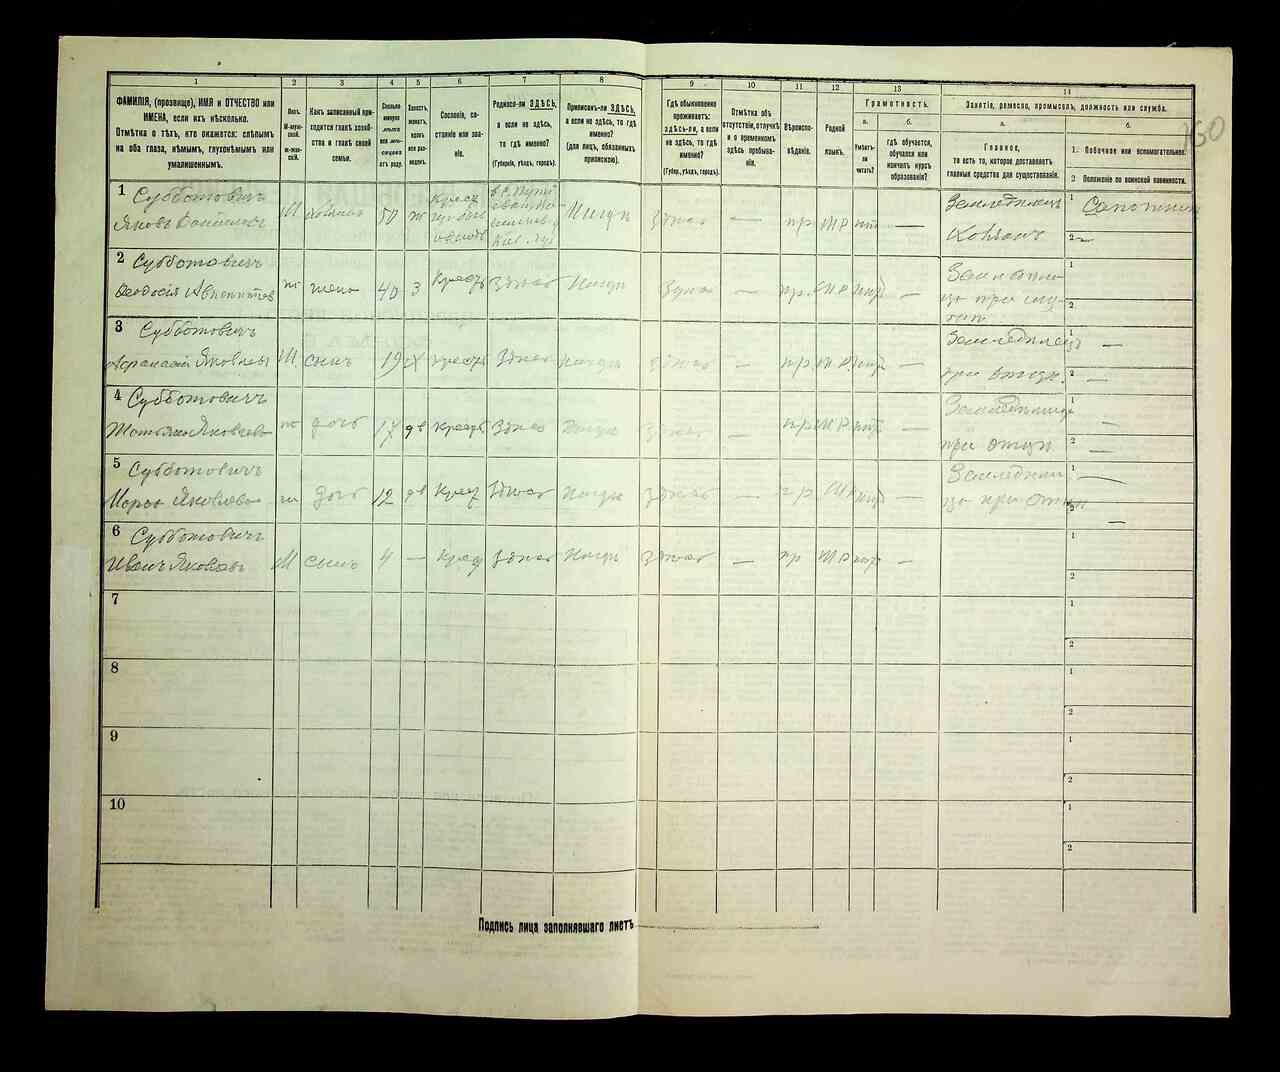 1 2 3 4 5 6 7 8 9 10 11 12 13 14
ФАМИЛІЯ, (прозвище), ИМЯ и ОТЧЕСТВО или
ИМЕНА, если ихъ нѣсколько.
Отмѣтка о тѣхъ, кто окажется: слѣпымъ
на оба глаза, нѣмымъ, глухонѣмымъ или
умалишеннымъ.
Полъ.
М-мужской.
ж-женскій.
Какъ записанный при-
ходится главѣ хозяй-
ства и главѣ своей
семьи.
Сколько
минуло
лѣтъ
или мѣ-
сяцевъ
отъ роду.
Холостъ,
женатъ,
вдовъ
или раз-
веденъ.
Сословіе, со-
стояніе или зва-
ніе.
Родился-ли ЗДѢСЬ,
а если не здѣсь,
то гдѣ именно?
(Губернія, уѣздъ, городъ).
Приписанъ-ли ЗДѢСЬ,
а если не здѣсь, то гдѣ
именно?
(для лицъ, обязанныхъ
припискою).
Гдѣ обыкновенно
проживаетъ:
здѣсь-ли, а если
не здѣсь, то гдѣ
именно?
(Губер., уѣздъ, городъ).
Отмѣтка объ
отсутствіи, отлучкѣ
и о временномъ
здѣсь пребыва-
ніи.
Вѣроиспо-
вѣданіе.
Родной
языкъ.
Грамотность.
а.
Умѣетъ-
ли
читать?
б.
гдѣ обучается,
обучался или
кончилъ курсъ
образованія?
Занятіе, ремесло, промыселъ, должность или служба.
а.
Главное,
то есть то, которое доставляетъ
главныя средства для существованія.
б.
1. Побочное или вспомогательное.
2 Положеніе по воинской повинности.
160
1 Субботовичъ
Яковъ М 50 ж здѣсь — пр МР нѣт —
1
2 —
2 Субботовичъ
Феодосія жена 40 З крест здѣсь здѣсь — пр. МР нѣт —
1
2
3 Субботовичъ
Афанасій Яковлевъ М. сынъ 19 Х крест здѣсь здѣсь — пр. МР нѣт — Земледѣлецъ
при отцѣ.
1 —
2 —
4 Субботовичъ
Татьяна Яковлева ж дочь 17 дв крест здѣсь здѣсь — пр МР нѣт Земледѣлица
при отцѣ
1 —
2 —
5 Субботовичъ
Марья Яковлева ж дочь 12 дв крест здѣсь здѣсь — пр МР нѣт — Земледѣли
ца при отцѣ
1 —
2 —
6 Субботовичъ
Иванъ Яковлевъ М сынъ 4 — крест здѣсь здѣсь — пр МР нѣт —
1
2
7
1
2
8
1
2
9
1
2
10
1
2
Подпись лица заполнявшаго листъ